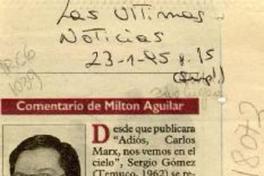 Las Ultimas
Noticias
23-1-95 p. 15
(Supl.)
Comentario de Milton Aguilar
Desde que publicara
"Adiós, Carlos
Marx, nos vemos en el
cielo", Sergio Gómez
(Temuco, 1962) se re-